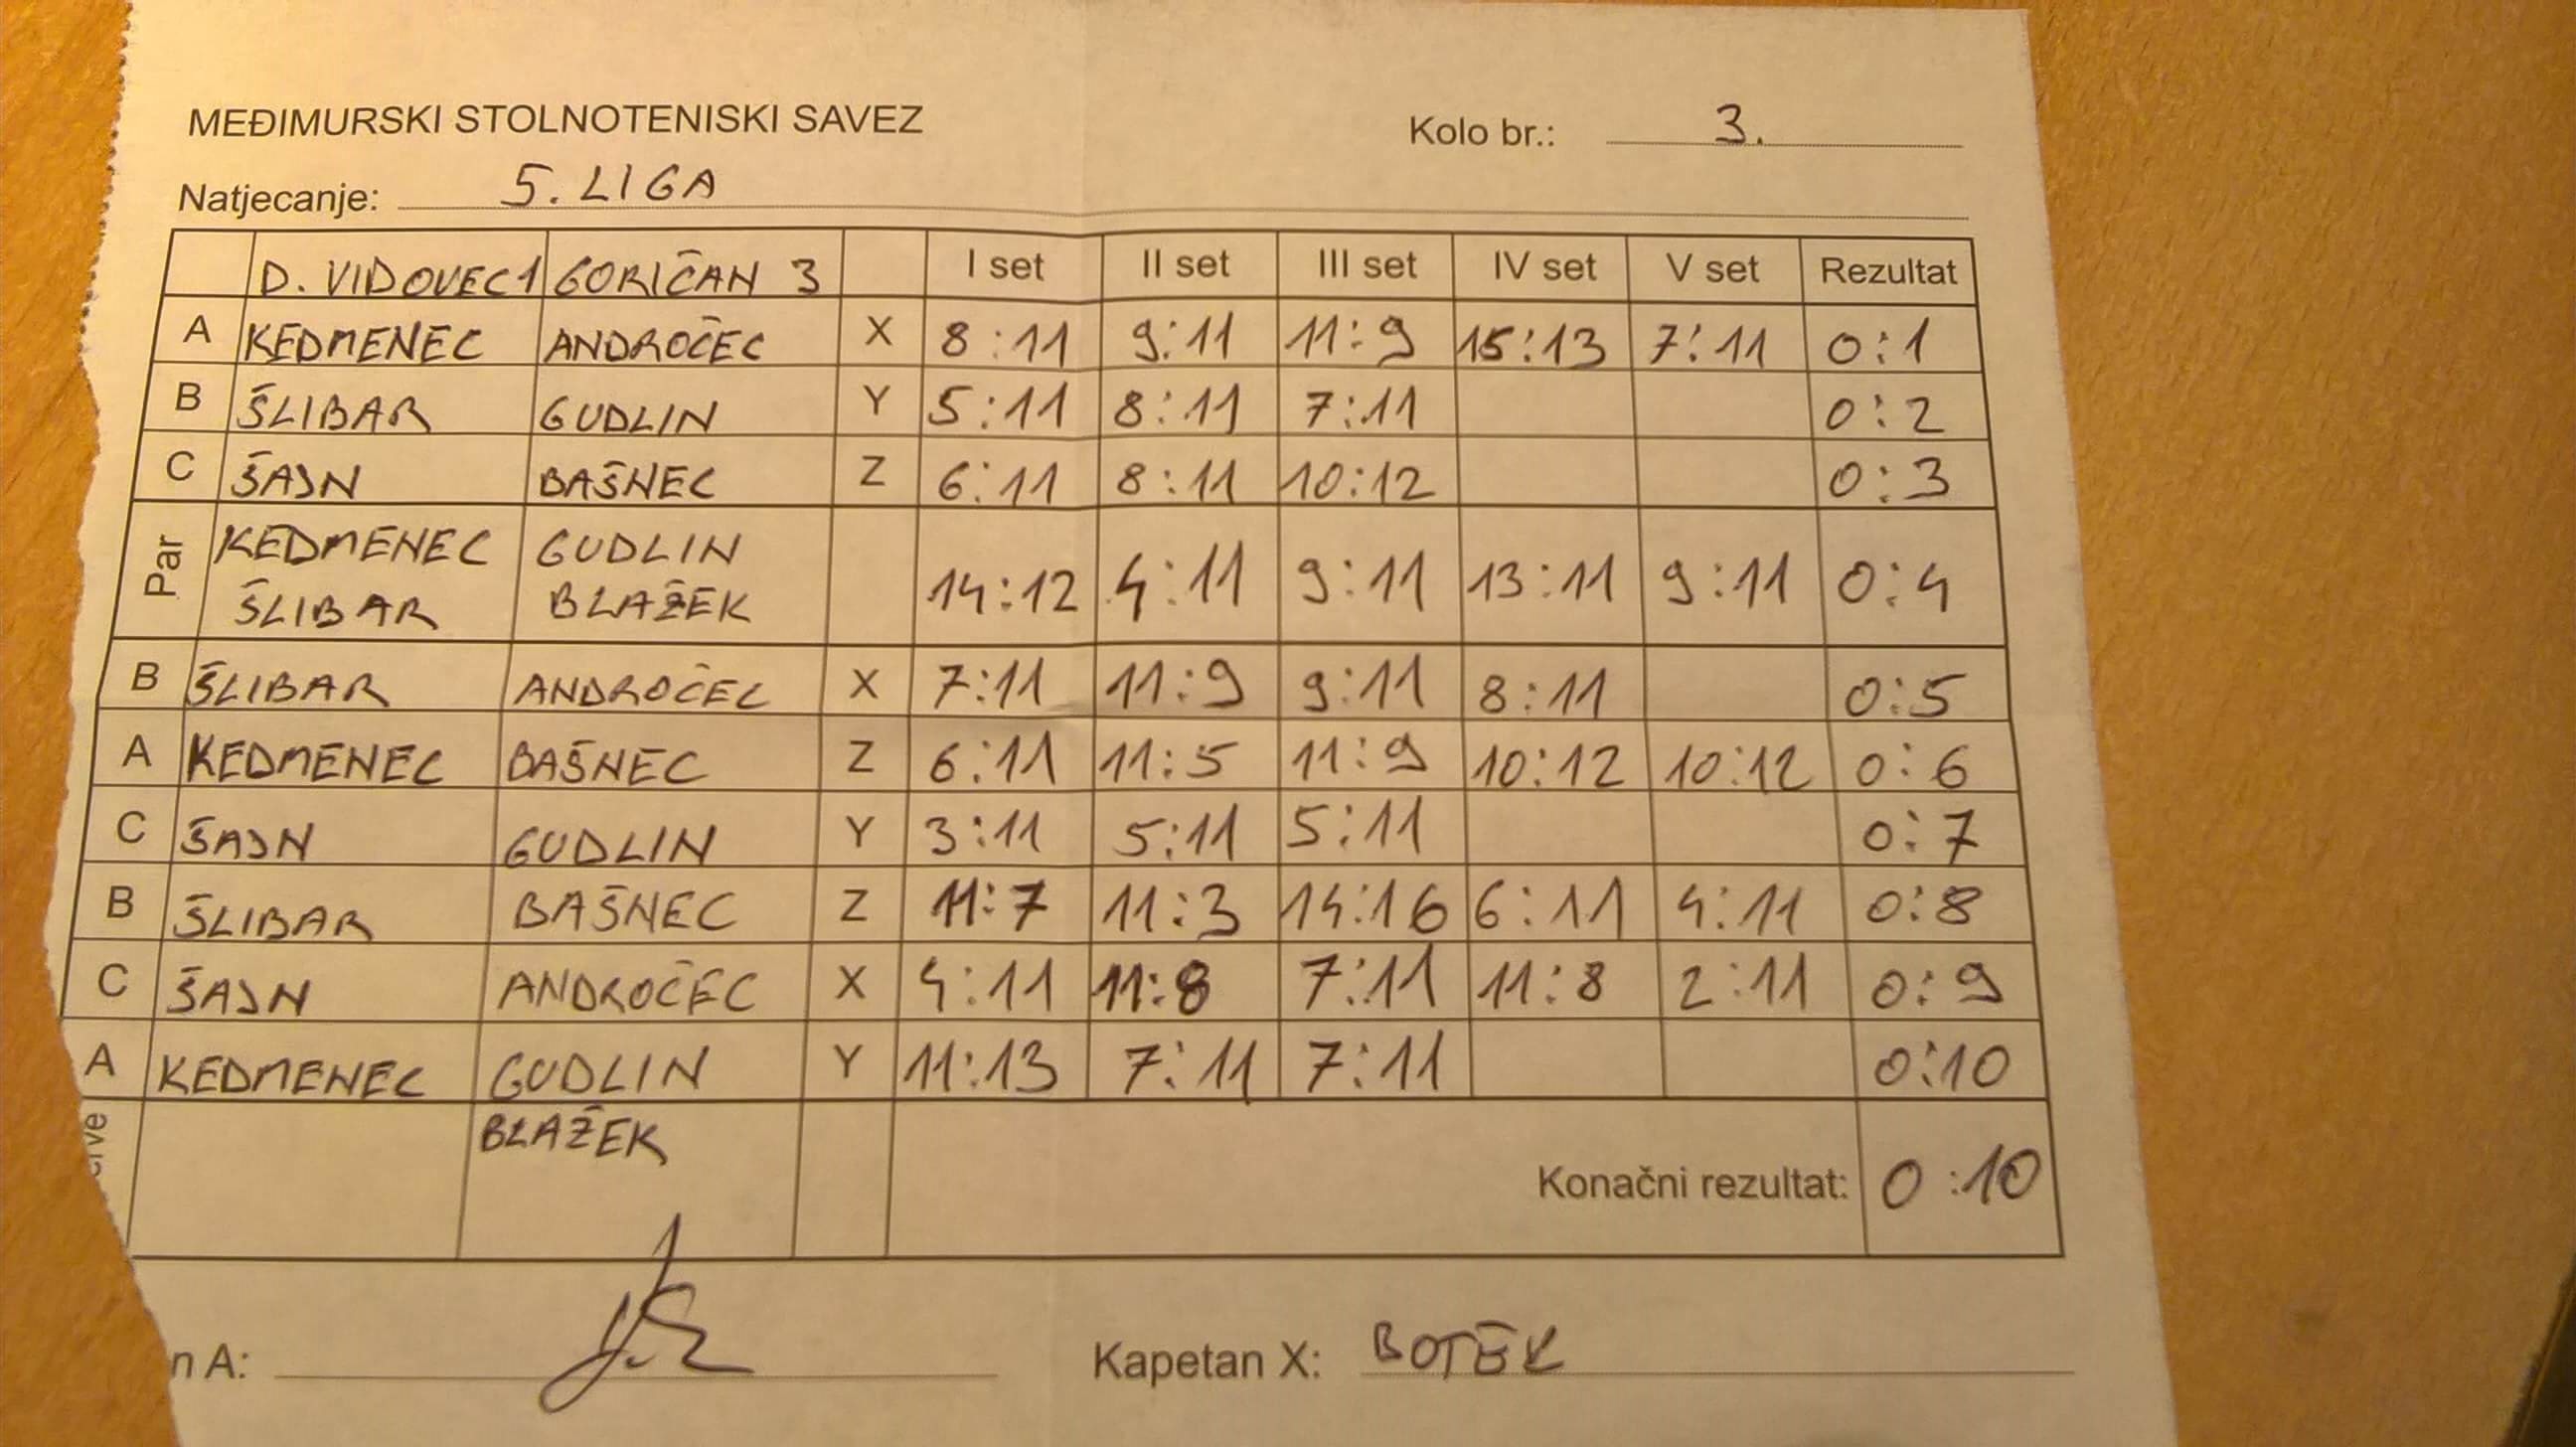 MEĐIMURSKI STOLNOTENISKI SAVEZ
Kolo br.: 3.
Natjecanje: 5. LIGA
D. VIDOVEC 1 GORIČAN 3 I set II set III set IV set V set Rezultat
A KEDMENEC ANDROČEC X 8:11 9:11 11:9 15:13 7:11 0:1
B ŠLIBAR GUDLIN Y 5:11 8:11 7:11 0:2
C ŠAJN BAŠNEC Z 6:11 8:11 10:12 0:3
Par KEDMENEC GUDLIN
ŠLIBAR BLAŽEK 14:12 4:11 9:11 13:11 9:11 0:4
B ŠLIBAR ANDROČEC X 7:11 11:9 9:11 8:11 0:5
A KEDMENEC BAŠNEC Z 6:11 11:5 11:9 10:12 10:12 0:6
C ŠAJN GUDLIN Y 3:11 5:11 5:11 0:7
B ŠLIBAR BAŠNEC Z 11:7 11:3 14:16 6:11 4:11 0:8
C ŠAJN ANDROČEC X 4:11 11:8 7:11 11:8 2:11 0:9
A KEDMENEC GUDLIN Y 11:13 7:11 7:11 0:10
erve BLAŽEK
Konačni rezultat: 0:10
n A:
Kapetan X: BOTEK